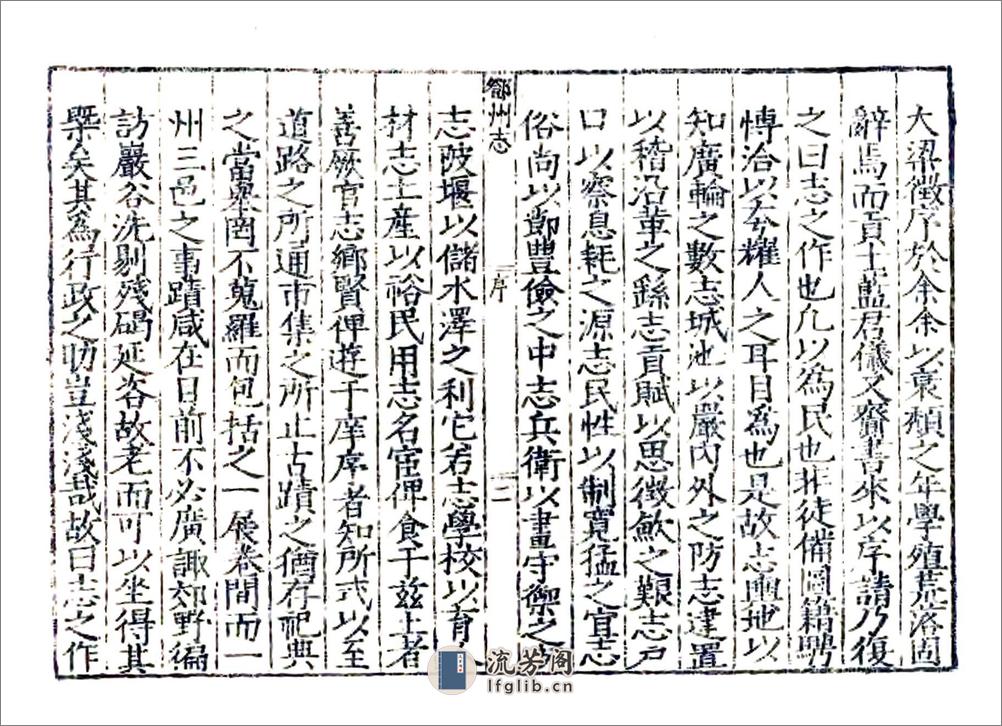 大梁徵序於余余以衰頹之年學殖荒落固
辭焉而貢士藍君儀又齎書來以序請乃復
之曰志之作也凡以為民也非徒備圖籍騁
愽洽以夸耀人之耳目為也是故志輿地以
知廣輪之數志城池以嚴內外之防志建置
以稽沿革之繇志貢賦以思徵斂之艱志戶
口以察息耗之源志民性以制寬猛之宜志
俗尚以節豐儉之中志兵衛以畫守禦之
鄧州志
序
二
志陂堰以儲水澤之利它若志學校以育
材志土產以裕民用志名宦俾食于茲土者
善厥官志鄉賢俾遊于庠序者知所式以至
道路之所通市集之所止古蹟之猶存祀典
之當舉罔不蒐羅而包括之一展卷間而一
州三邑之事蹟咸在目前不必廣諏郊野徧
訪巖谷洗剔殘碣延咨故老而可以坐得其
槩矣其為行政之助豈淺淺哉故曰志之作
流芳阁
lfglib.cn